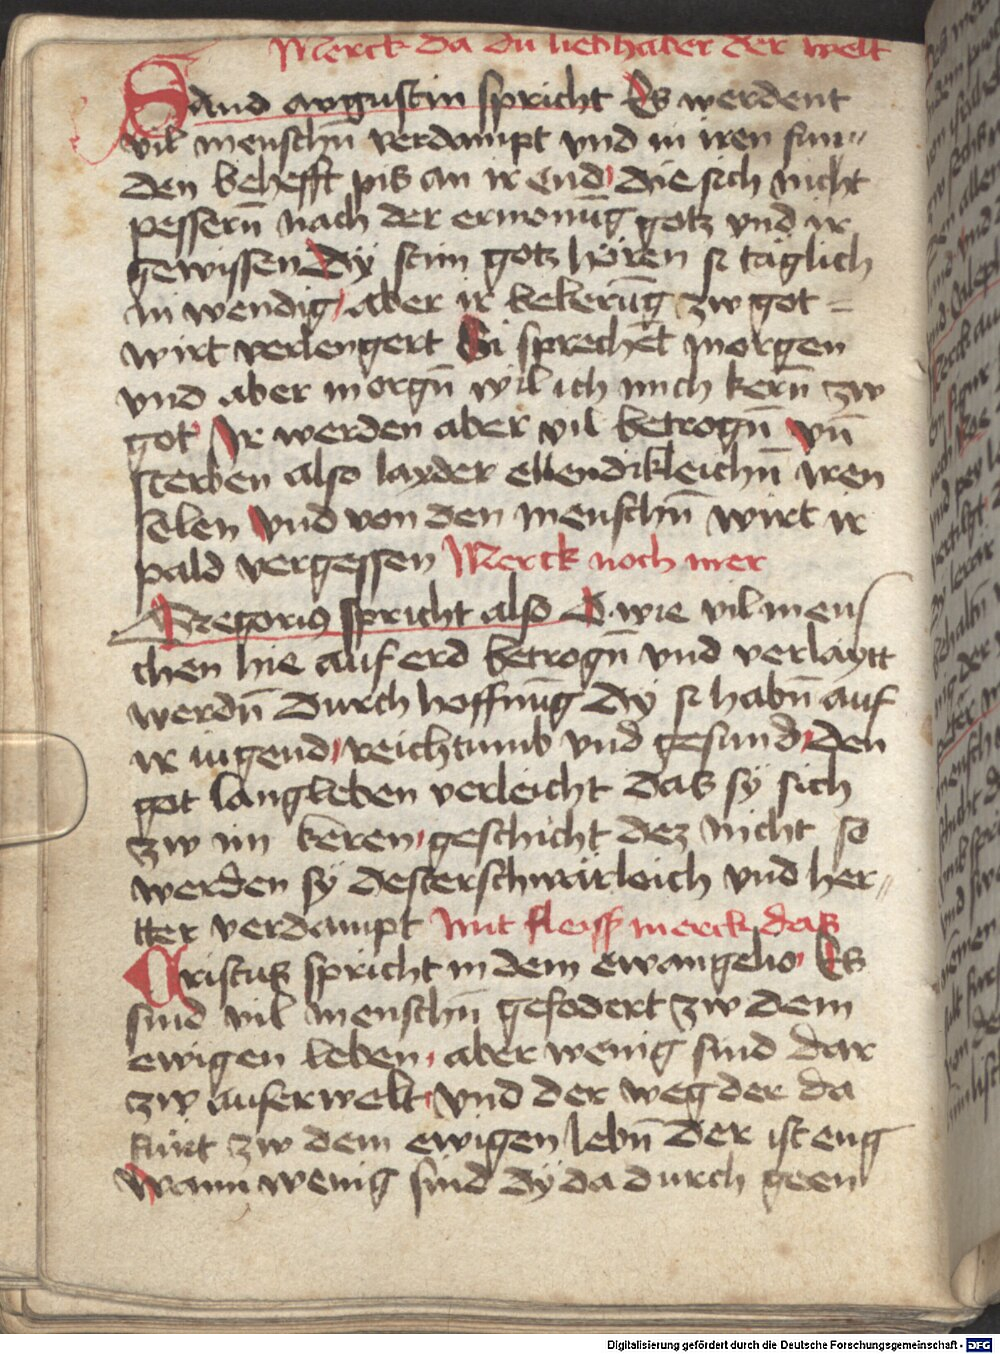 Merck da du liebhaber der welt
Sand augustin spricht Es werdent
vil menschn̄ verdampt vnd in iren sun=
den behefft pis an ir end die sich nicht
pessern̄ nach der ermonūg gotz vnd ir
gewissen Dÿ stim gotz hören si täglich
in wendig aber ir bekerūg zw got =
wirt verlengert Si sprechet morgen
vnd aber morgn̄ wil ich mich kern̄ zw
got Ir werden aber vil betrogn̄ vn̄
sterben also layder ellendikleichn̄ iren
selen vnd von den menschn̄ wirt ir
pald vergessen Merck noch mer
Gregorius spricht also O wie vil men
schen hie auf erd betrogn̄ vnd verlaytt
werdn̄ durch hoffnūg dÿ si habn̄ auf
ir iugend reichtumb vnd gesund den
got lang leben verleicht das sÿ sich
zw im keren geschicht dez nicht so
werden sÿ desterschwärleich vnd her=
tter verdampt mit fleiss merck das
Cristus spricht in dem ewangelio Es
sind vil menschn̄ gefodert zw dem
ewigen leben aber wenig sind dar
zw auserwelt vnd der weg der da
fürt zw dem ewigen lebn̄ der ist eng
wann wenig sind dÿ da durch geen
Digitalisierung gefördert durch die Deutsche Forschungsgemeinschaft - DFG